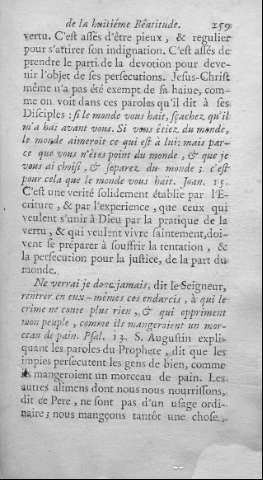 de la huitiéme Béatitude. 259
vertu. C'est assés d'être pieux, & regulier
pour s'attirer son indignation. C'est assés de
prendre le parti de la devotion pour deve-
nir l'objet de ses persecutions. Jesus-Christ
même n'a pas été exempt de sa haine, com-
me on voit dans ces paroles qu'il dit à ses
Disciples : si le monde vous hait, sçachez qu'il
m'a hai avant vous. Si vous êtiez du monde,
le monde aimeroit ce qui est à lui; mais par-
ce que vous n'êtes point du monde, & que je
vous ai choisi, & separez du monde ; c'est
pour cela que le monde vous hait. Joan. 15.
C'est une verité solidement établie par l'E-
criture, & par l'experience, que ceux qui
veulent s'unir à Dieu par la pratique de la
vertu, & qui veulent vivre saintement, doi-
vent se préparer à souffrir la tentation, &
la persecution pour la justice, de la part du
monde.
Ne verrai je donc jamais, dit le Seigneur,
rentrer en eux-mêmes ces endurcis, à qui le
crime ne coute plus rien, & qui oppriment
mon peuple, comme ils mangeroient un mor-
ceau de pain. Psal. 13. S. Augustin expli-
quant les paroles du Prophete, dit que les
impies persecutent les gens de bien, comme
ils mangeroient un morceau de pain. Les
autres alimens dont nous nous nourrissons,
dit ce Pere, ne sont pas d'un usage ordi-
naire ; nous mangeons tantôt une chose,